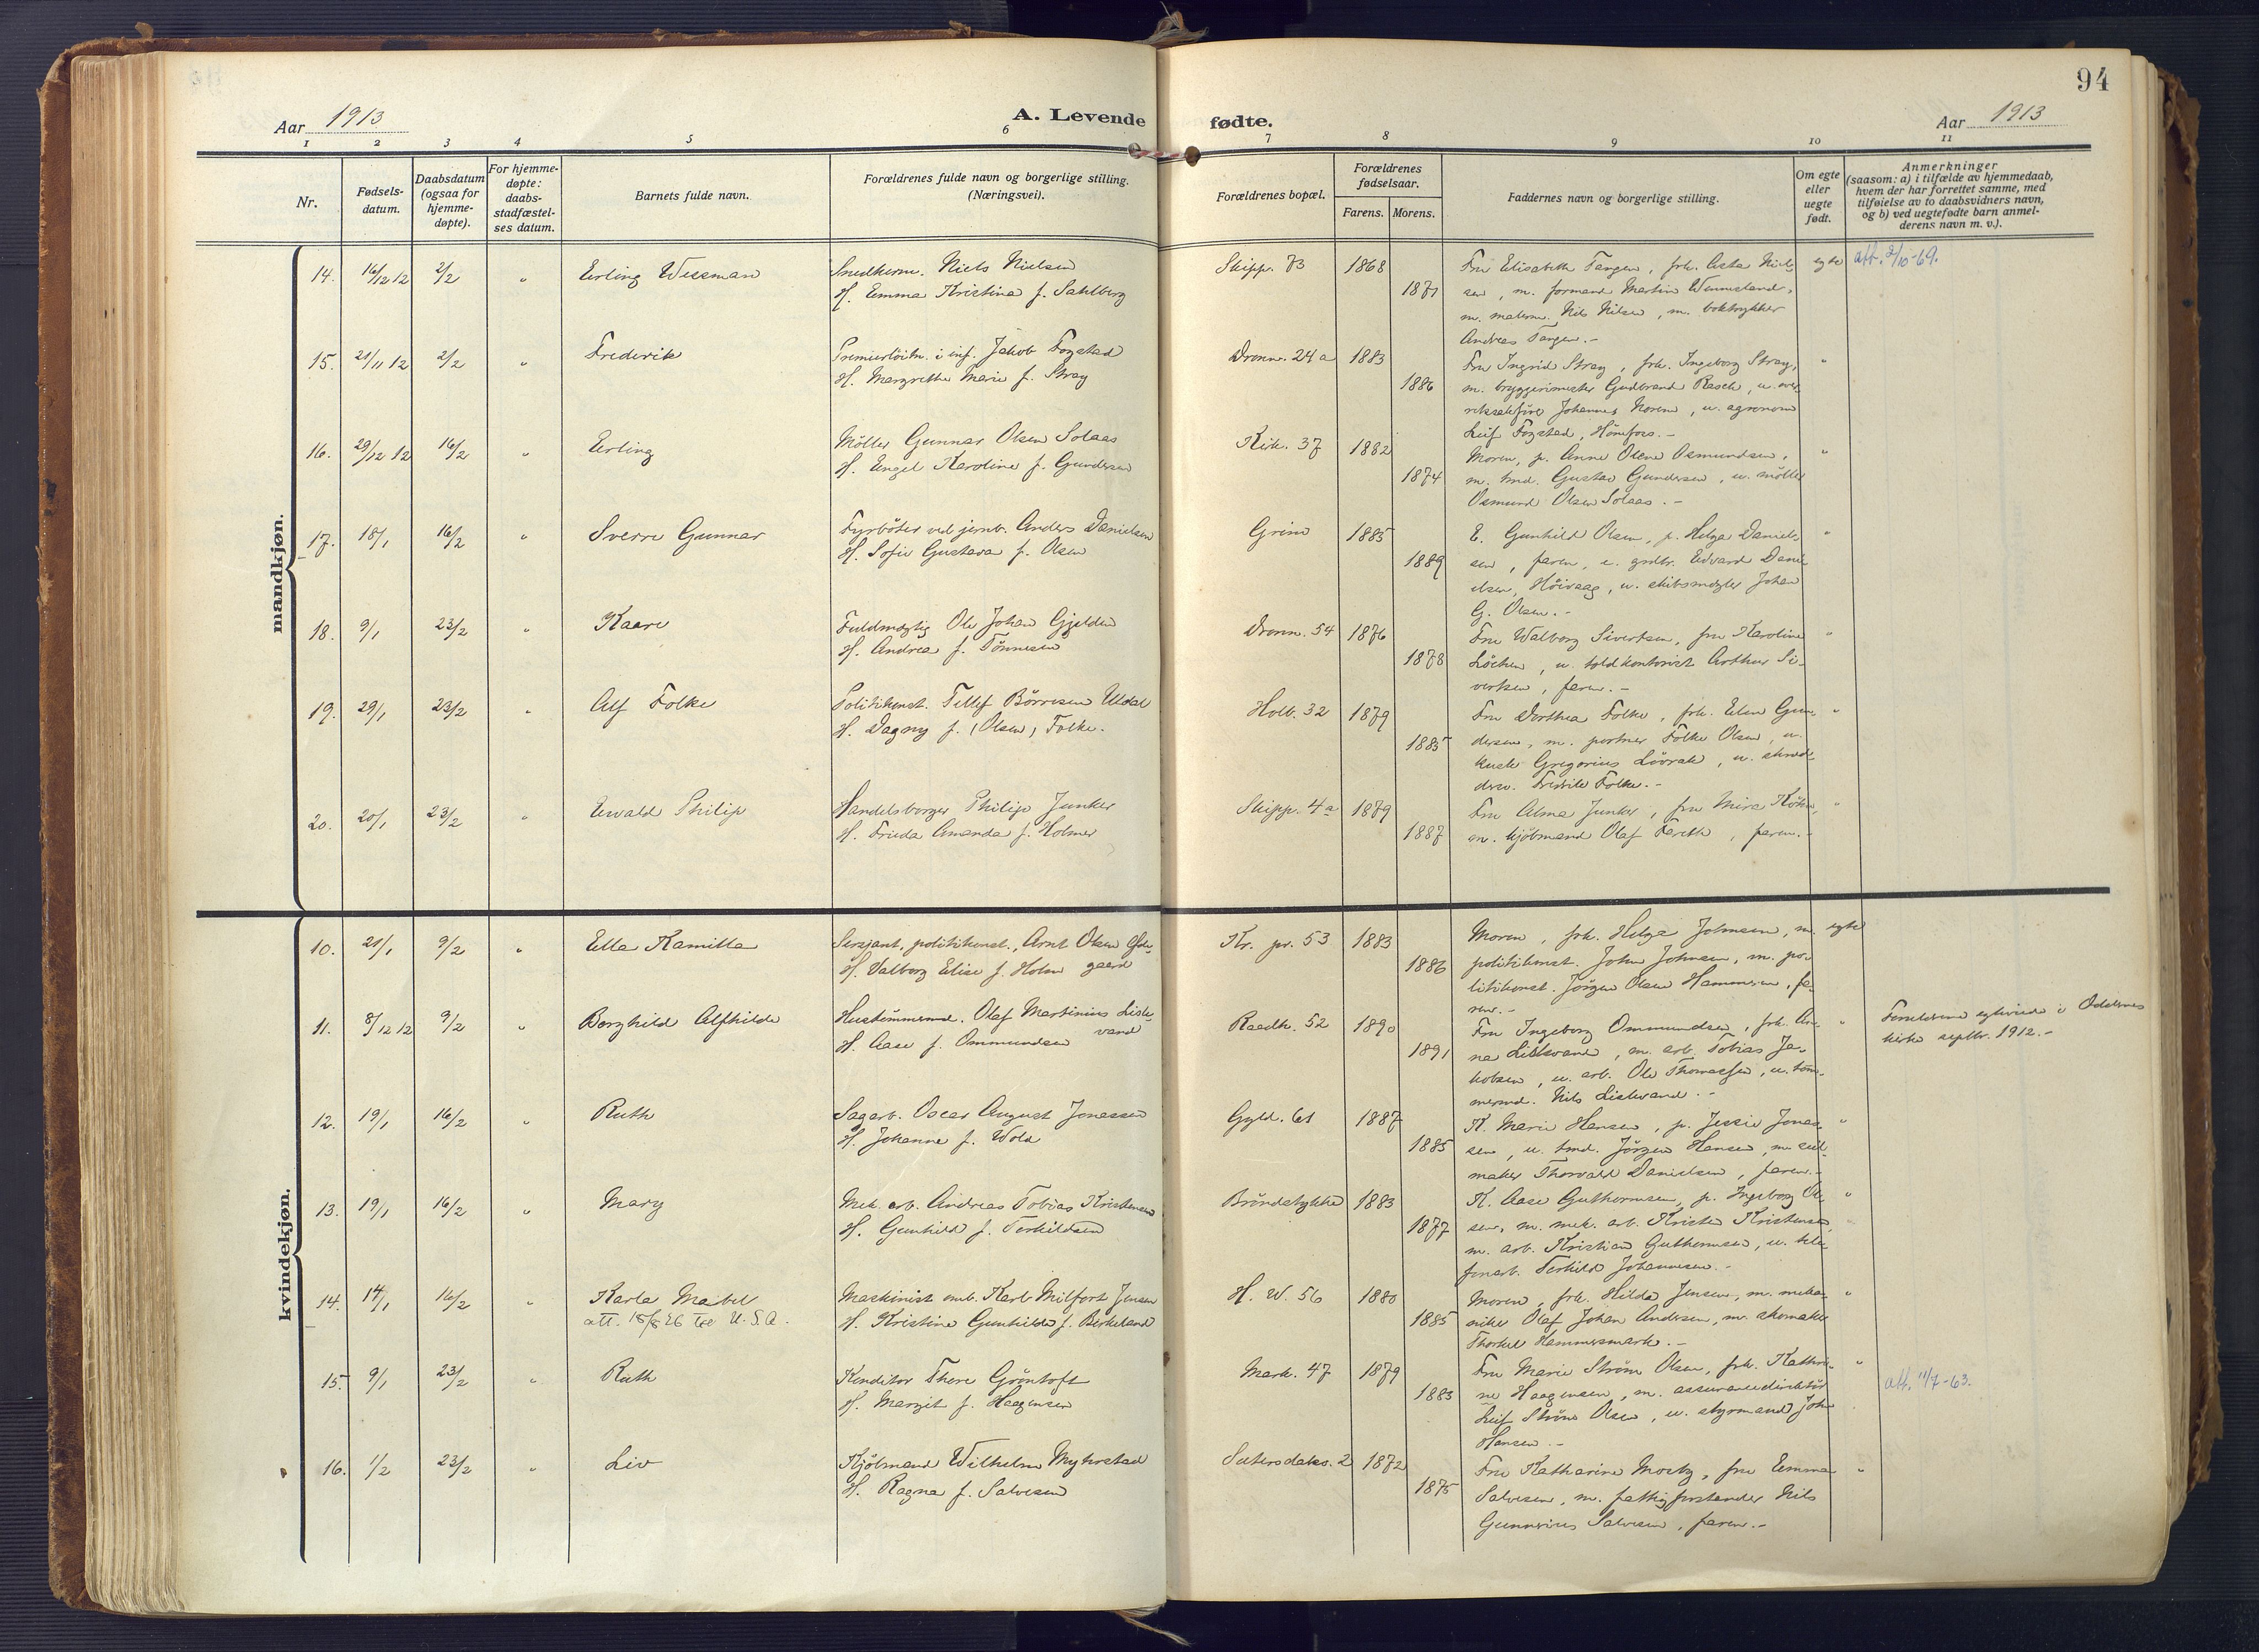 94
Aar 1913
A. Levende fødte.
Aar 1913
1 2 3 4 5 6 7 8 9 10 11
Nr.
Fødsels-
datum.
Daabsdatum
(ogsaa for
hjemme-
døpte).
For hjemme-
døpte:
daabs-
stadfæstel-
ses datum.
Barnets fulde navn.
Forældrenes fulde navn og borgerlige stilling.
(Næringsvei).
Forældrenes bopæl.
Forældrenes
fødselsaar.
Farens. Morens.
Faddernes navn og borgerlige stilling.
Om egte
eller
uegte
født.
Anmerkninger
(saasom: a) i tilfælde av hjemmedaab,
hvem der har forrettet samme, med
tilføielse av to daabsvidners navn,
og b) ved uegtefødte barn anmel-
derens navn m. v.).
mandkjøn.
14. 16/12 12 2/2 " Erling Wessman
Snedkerm. Niels Nielsen
H. Emma Kristina f. Sahlberg
Skipp. 73 1868
1871
Fru Elisabeth Tangen, frk. Asta Niel-
sen, m. formand Martin Wennesland,
m. malerm. Nils Nilsen, m. boktrykker
Andreas Tangen.-
egte
att. 2/10-69.
15. 21/11 12 2/2 " Frederik
Premierløitn. i inf. Jakob Fogstad
H. Margrethe Marie f. Stray
Dronn. 24a 1883
1886
Fru Ingrid Stray, frk. Ingeborg Stray,
m. bryggerimester Gudbrand Rasch, u. over-
retssakfører Johannes Noren, u. agronom
Leif Fogstad, Hønefoss.-
"
16. 29/12 12 16/2 " Erling
Møller Gunnar Olsen Solaas
H. Engel Karoline f. Gundersen
Kirk. 37 1882
1874
Moren, p. Anne Olene Osmundsen,
m. tmd. Gustav Gundersen, u. møller
Osmund Olsen Solaas.-
"
17. 18/1 16/2 " Sverre Gunnar
Fyrbøter ved jernb. Anders Danielsen
H. Sofie Gustava f. Olsen
Grim 1885
1889
E. Gunhild Olsen, p. Helga Daniel-
sen, faren, u. grdbr. Edvard Dani-
elsen, Høivaag, u. skibsmægler Johan
G. Olsen.-
"
18. 9/1 23/2 " Kaare
Fuldmægtig Ole Johan Gjelden
H. Andrea f. Tønnesen
Dronn. 54 1876
1878
Fru Walborg Sivertsen, fru Karoline
Løchen, u. toldkontorist Arthur Si-
vertsen, faren.-
"
19. 29/1 23/2 " Alf Folke
Politikonst. Tellef Børresen Uldal
H. Dagny f. (Olsen) Folke.
Holb. 32 1879
1885
Fru Dorthea Folke, frk. Elen Gun-
dersen, m. portner Folke Olsen, u.
kusk Gregorius Løvrak, u. skræd-
dersv. Fredrik Folke.-
"
20. 20/1 23/2 " Ewald Philip
Handelsborger Philip Junker
H. Frieda Amanda f. Holmer
Skipp. 4a 1879
1887
Fru Alma Junker, fru Mira
m. kjøbmand Olaf, faren.-
"
kvindekjøn.
10. 21/1 9/2 " Ella Kamilla
Sersjant, politikonst., Arnt Olsen
H. Valborg Elise f. Holm gaard
Kr. pr. 53 1883
1886
Moren, frk. Helga Johnsen, m.
politikonst. John Johnsen, m. po-
litikonst. Jørgen Olsen Hammersen, fa-
ren.-
egte
11. 8/12 12 9/2 " Borghild Alfhilde
Hustømmermd. Olaf Martinius Liste-
H. Aase f. Ommundsen vand
Raadh. 52 1890
1891
Fru Ingeborg Ommundsen, frk. An-
na Listevand, m. arb. Tobias Ja-
kobsen, u. arb. Ole Thomassen, u. tøm-
mermd. Nils Listevand.-
"
Forældrene egteviede i Oddernes
kirke septbr. 1912.-
12. 19/1 16/2 " Ruth
Sagarb. Oscar August Jonassen
H. Johanne f. Wold
Gyld. 61 1887
1885
K. Marie Hansen, p. Jessie Jonas-
sen, u. tmd. Jørgen Hansen, m. seil-
maker Thorvald Danielsen, faren.-
"
13. 19/1 16/2 " Mary
Mek. arb. Andreas Tobias Kristensen
H. Gunhild f. Terkildsen
Brøndstykke 1883
1877
K. Aase Guthormsen, p. Ingeborg Ol-
sen, m. mek. arb. Krister Kristensen,
m. arb. Kristian Guthormsen, u. tele-
fonarb. Terkild Johannesen.-
"
14. 14/1 16/2 " Karla Mabel
att. 18/8 26 til U.S.A.
Maskinist emb. Karl Milfort Jensen
H. Kristine Gunhilde f. Birkeland
H. W. 56 1880
1885
Moren, frk. Hilda Jensen, m. meka-
niker Olaf Johan Andersen, m. skomaker
Thorkel Hammersmark.-
"
15. 9/1 23/2 " Ruth
Konditor Thore Grøntoft
H. Margit f. Haagensen
Mark. 47 1879
1883
Fru Marie Strøm Olsen, frk. Kathri-
ne Haagensen, m. assurancedirektør
Leif Strøm Olsen, u. styrmand John
Hansen.-
"
att. 11/7-63.
16. 1/2 23/2 " Liv
Kjøbmand Wilhelm Myhrstad
H. Ragna f. Salvesen
Sætersdalsv. 2 1872
1875
Fru Katharine Mortz, fru Emma
Salvesen, m. fattigforstander Nils
Gunnerius Salvesen, faren.-
"